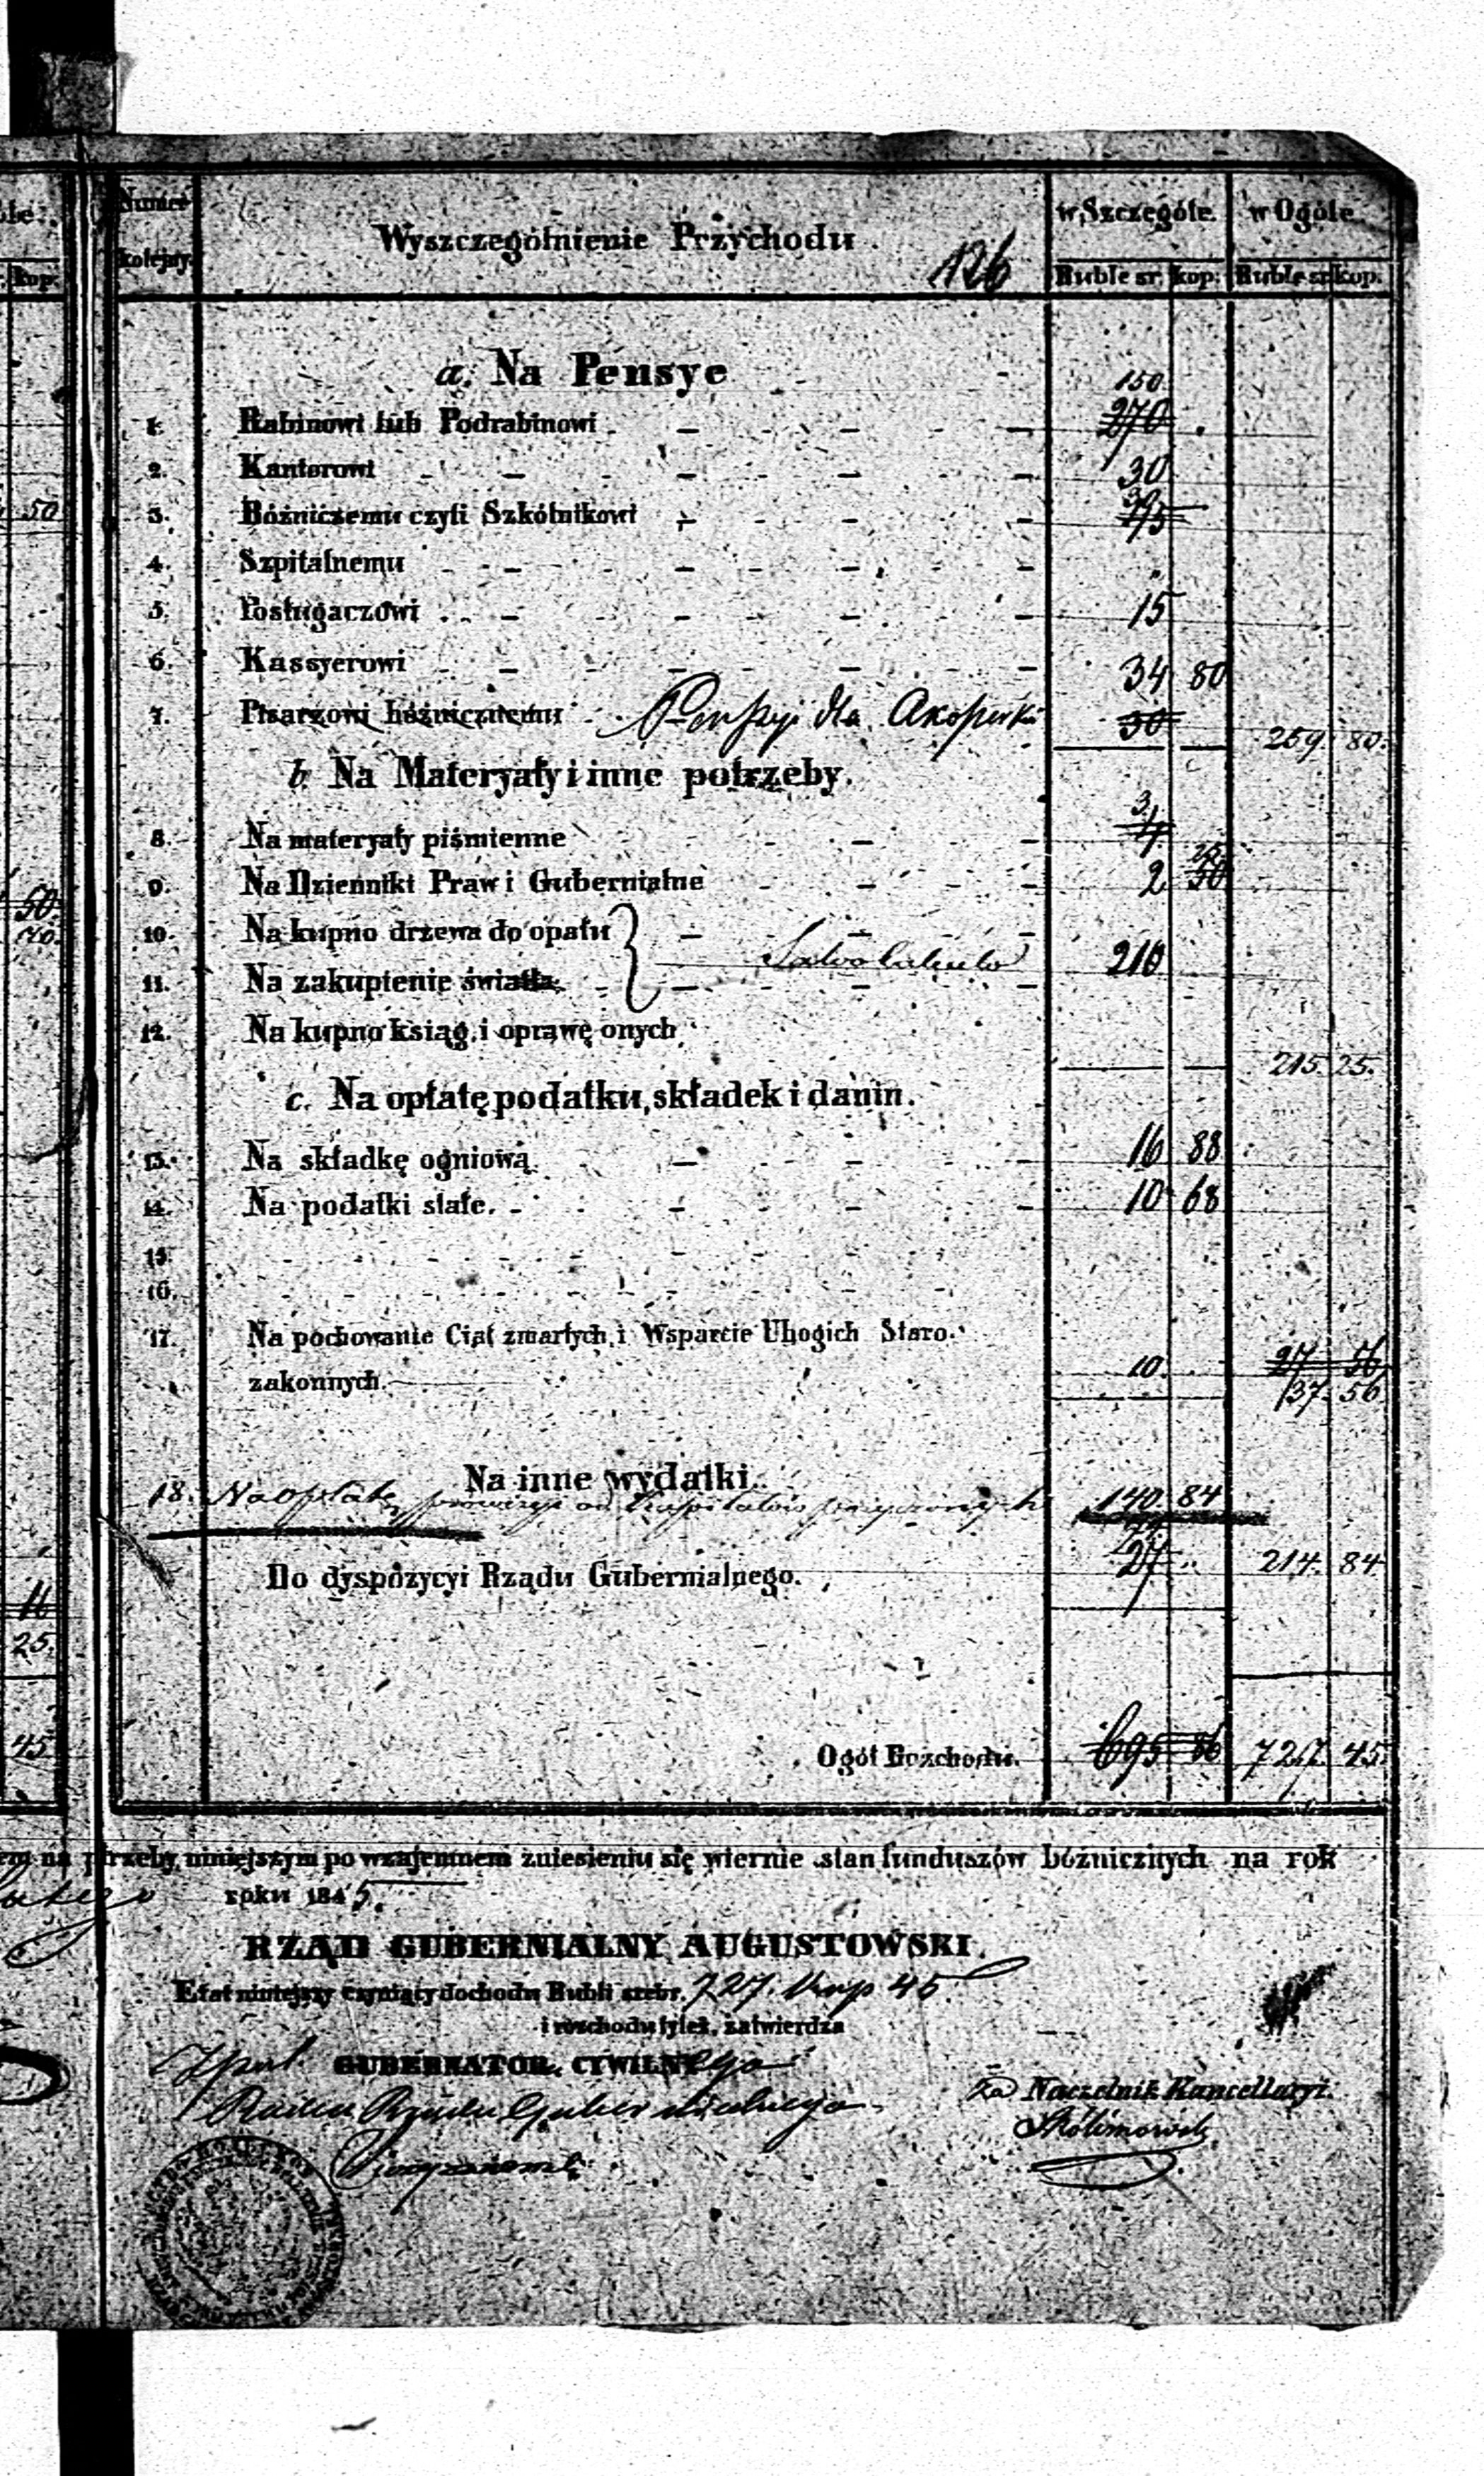 Numer kolejny.
Wyszczególnienie Przychodu.
126
w Szczególe.
w Ogóle.
Ruble sr. kop. Ruble sr. kop.
kop.
a. Na Pensye
150
1. Rabinowi lub Podrabinowi 270
2. Kantorowi 30
3. Bóźniczemu czyli Szkólnikowi
50
4. Szpitalnemu
5. Posługaczowi 15
6. Kassyerowi 34 80
7. Pisarzowi bóżniczemu dla 30
259. 80.
b. Na Materyały i inne potrzeby.
3
8. Na materyały piśmienne 4
25
9. Na Dzienniki Praw i Gubernialne 2 50
50.
10. Na kupno drzewa do opału
Salvo calculo 210
11. Na zakupienie światła.
12. Na kupno ksiąg i oprawę onych
215. 25.
c. Na opłatę podatku, składek i danin.
13. Na składkę ogniową 16 88
14. Na podatki stałe. 10 68
15.
16.
17. Na pochowanie Ciał zmarłych i Wsparcie Ubogich Staro-
zakonnych. 10. 27 56
37. 56
Na inne wydatki.
18. Na opłatę prowizyi od kapitałów pożyczonych 140. 84
Do dyspozycyi Rządu Gubernialnego. 27 214. 84
25.
45
Ogół Rozchodu. 695 56 727. 45.
potrzeby niniejszym po wzajemnem zniesieniu się wiernie stan funduszów bóżniczych na rok
roku 1845.
RZĄD GUBERNIALNY AUGUSTOWSKI.
Etat niniejszy czyniący dochodu Rubli srebr. 727. kop 45
i rozchodu tyleż, zatwierdza
GUBERNATOR CYWILNY
Radca Rządu Gubernialnego
za Naczelnik Kancellaryi.